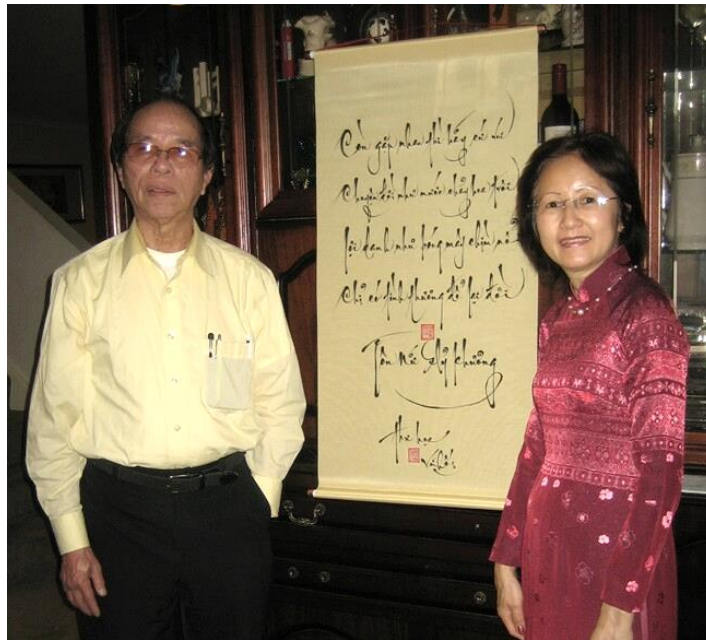 Còn gặp nhau thì hãy cứ vui
Chuyện đời như nước chảy hoa trôi
lợi danh như bóng mây chìm nổi
Chỉ có tình thương để lại đời
Tôn Nữ Hỷ Khương
Thư họa
Vũ Hối